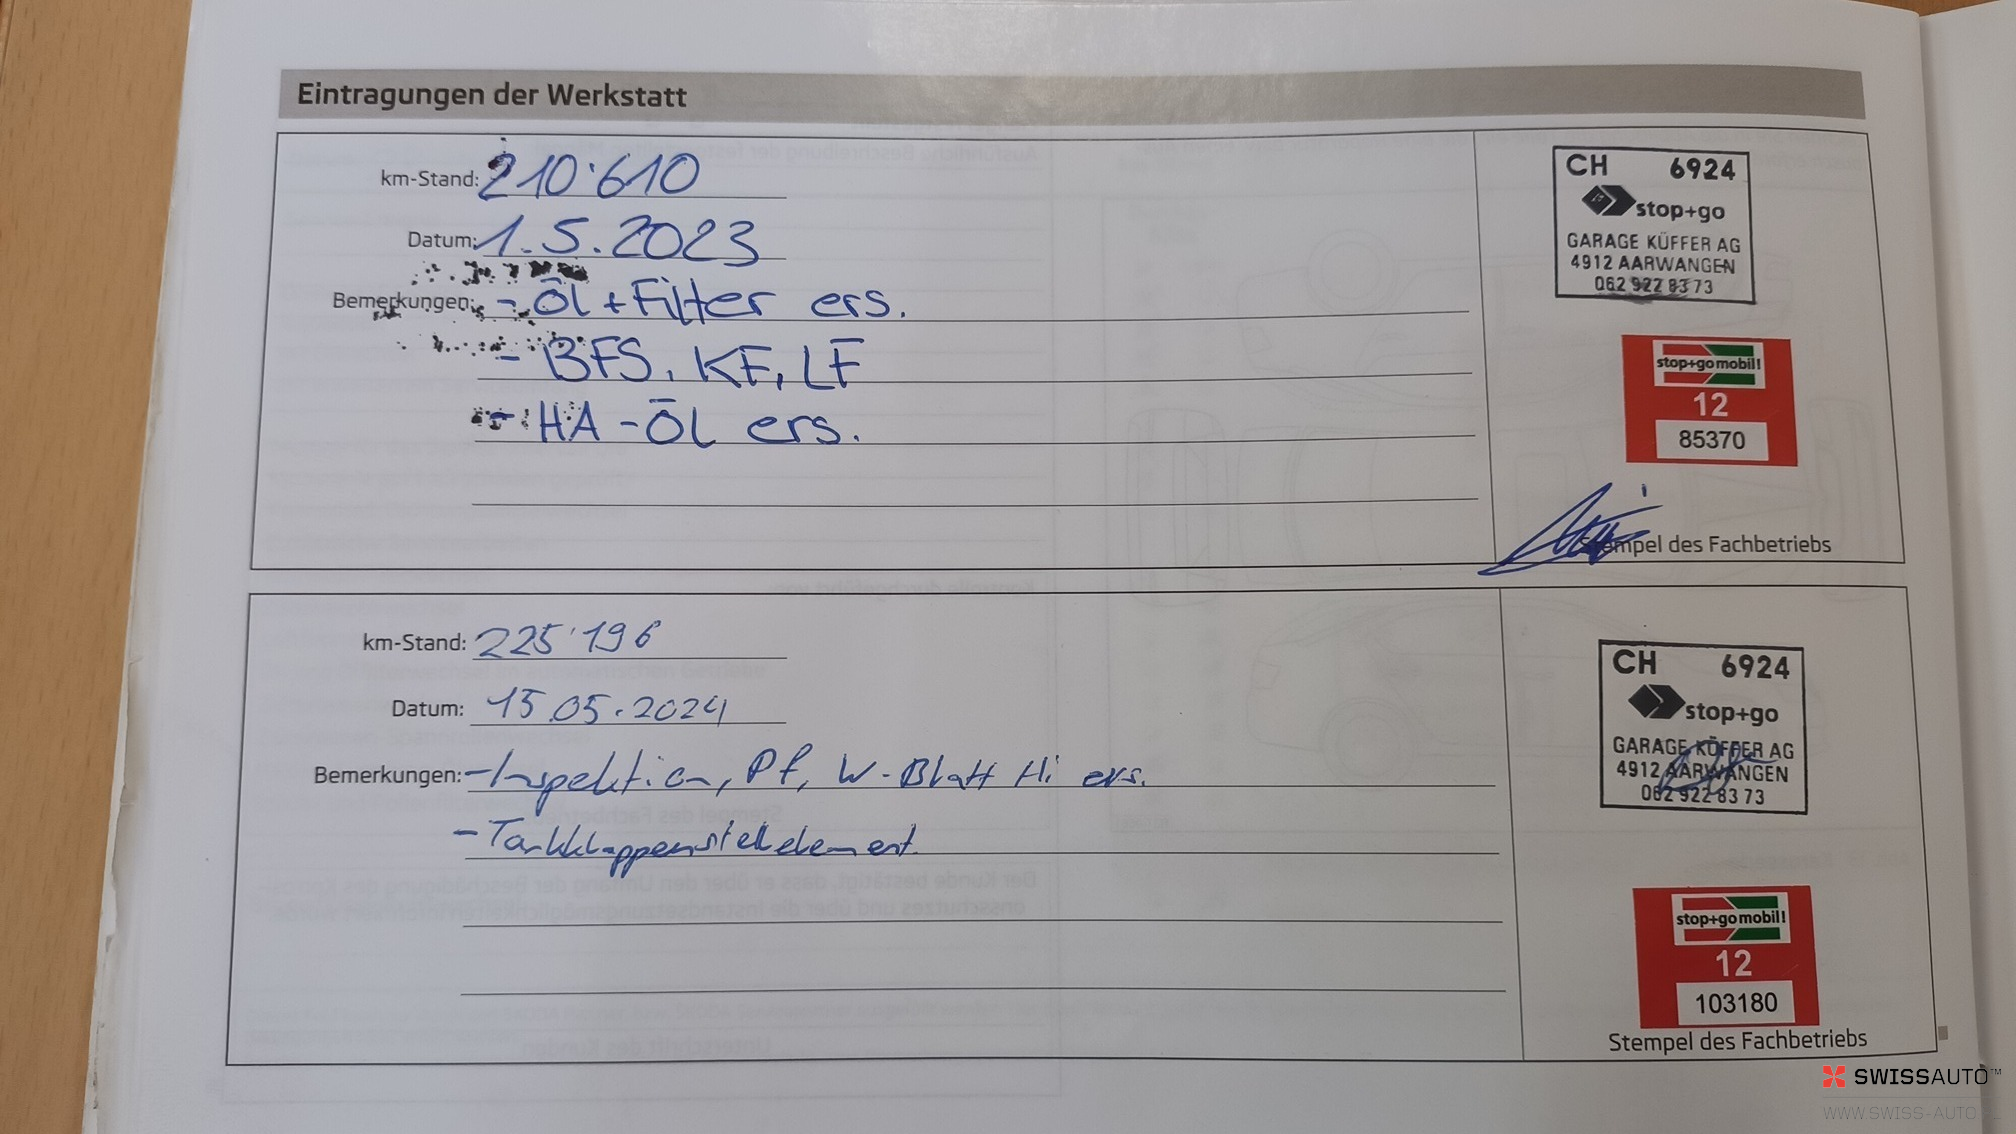 Eintragungen der Werkstatt
km-Stand: 210'610
Datum: 1.5.2023
Bemerkungen: - Öl + Filter ers.
- BFS, KF, LF
- HA - Öl ers.
CH 6924
stop+go
GARAGE KÜFFER AG
4912 AARWANGEN
062 922 83 73
stop+go mobil!
12
85370
Stempel des Fachbetriebs
km-Stand: 225'196
Datum: 15.05.2024
Bemerkungen: - Inspektion, Pf, W-Blatt Hi ers.
- Tankklappenstellelement
CH 6924
stop+go
GARAGE KÜFFER AG
4912 AARWANGEN
062 922 83 73
stop+go mobil!
12
103180
Stempel des Fachbetriebs
SWISSAUTO™